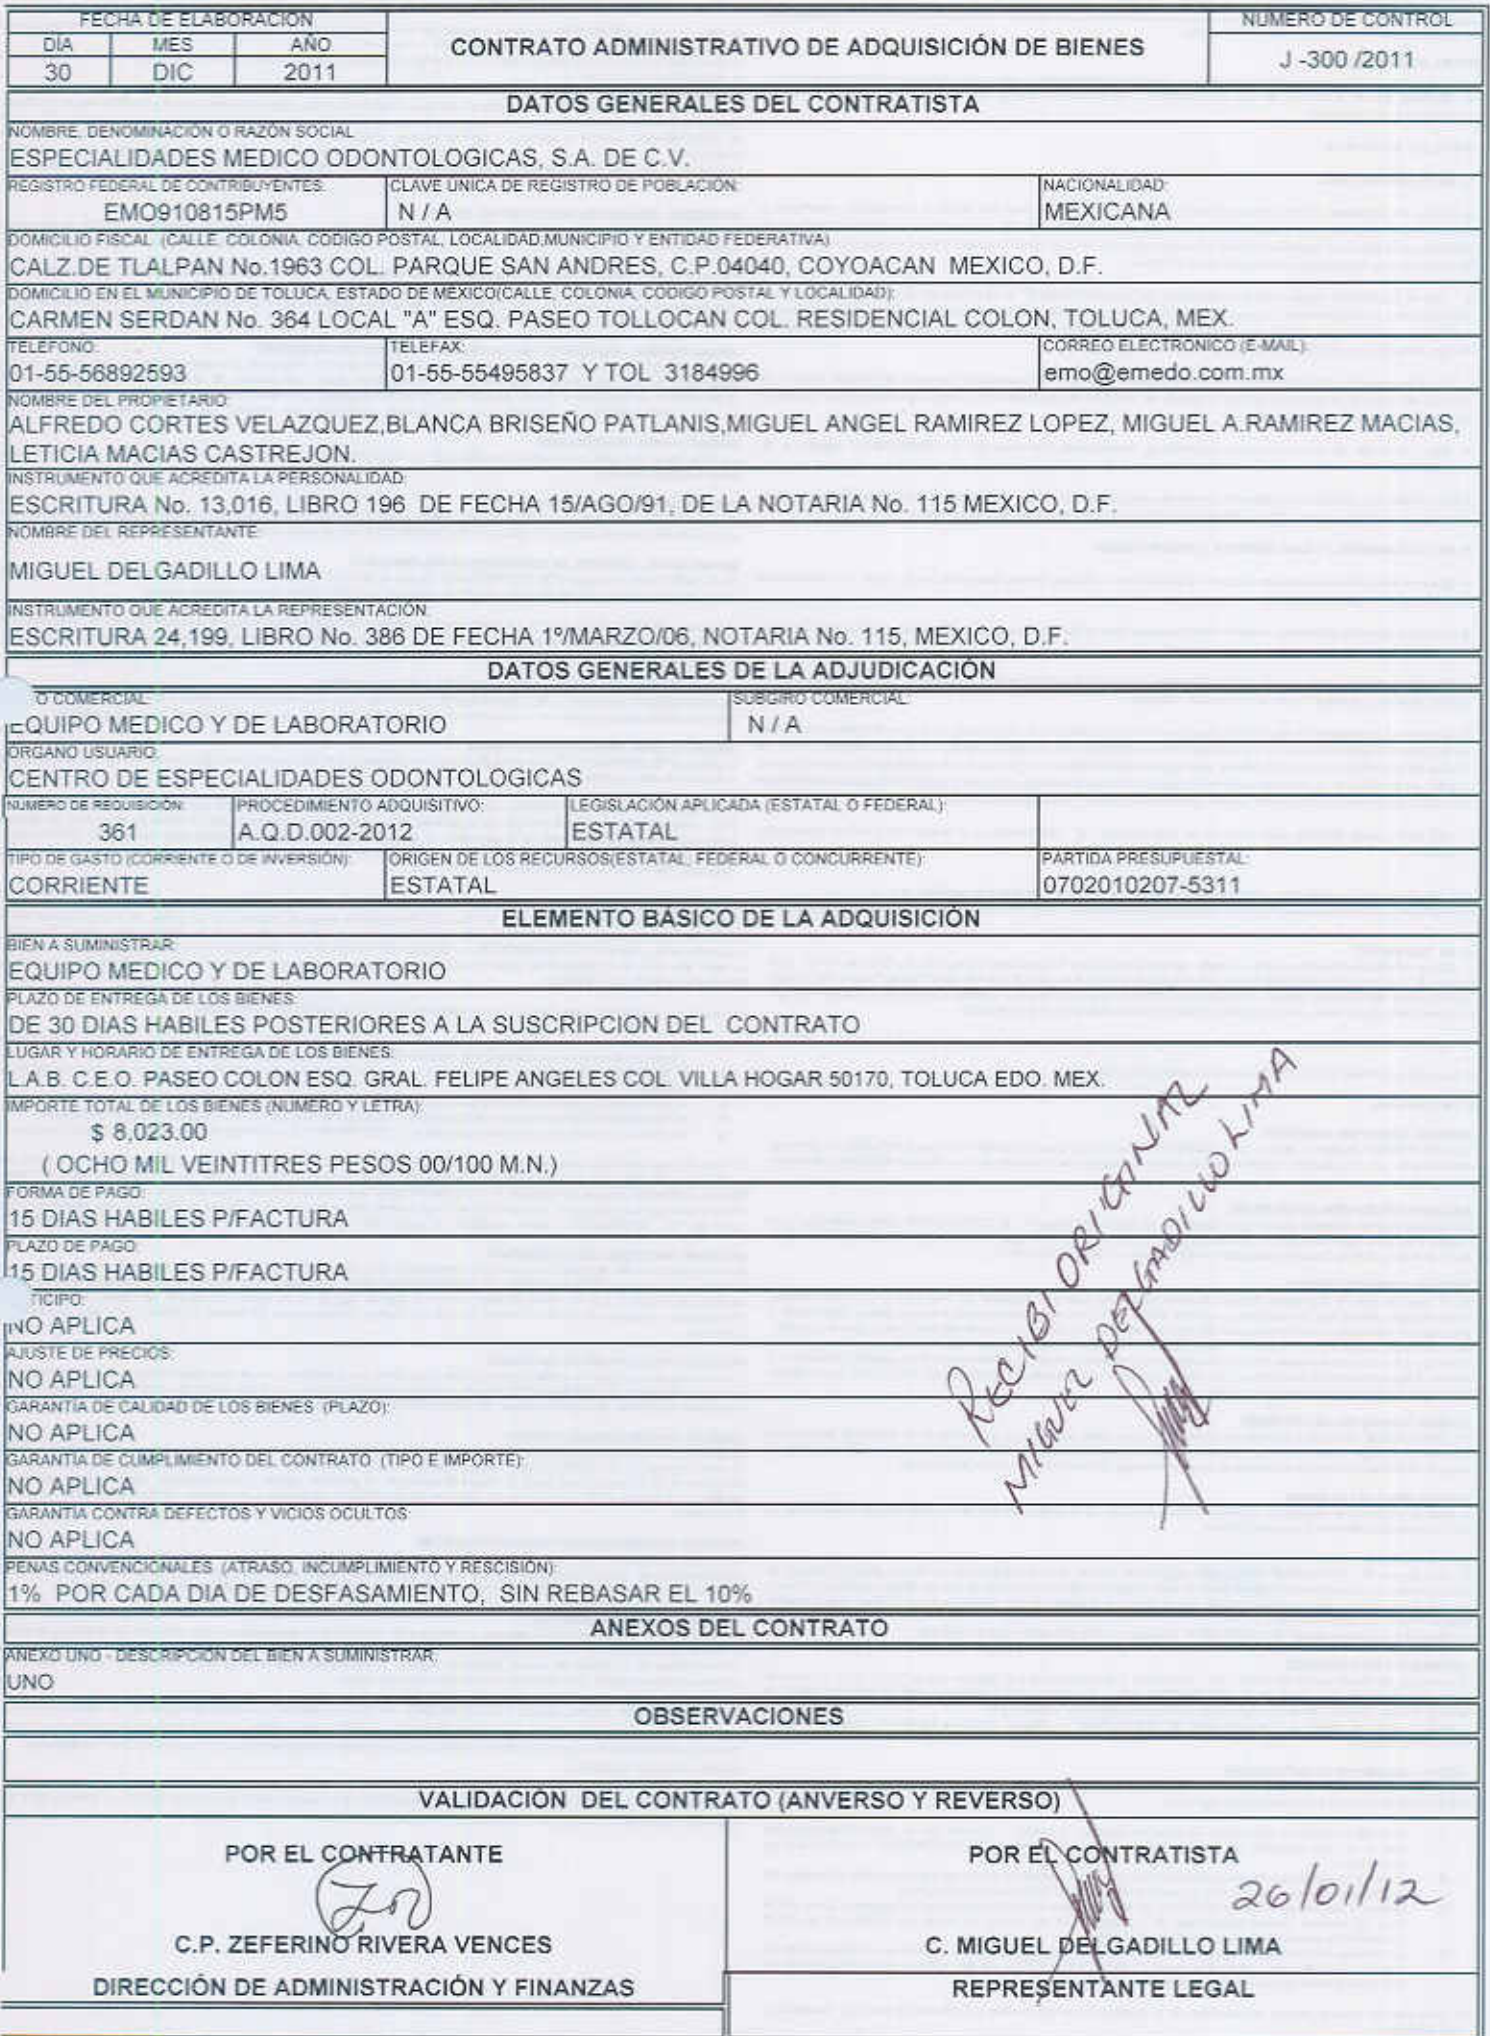 FECHA DE ELABORACIÓN
DÍA MES AÑO
30 DIC 2011
CONTRATO ADMINISTRATIVO DE ADQUISICIÓN DE BIENES
NÚMERO DE CONTROL
J -300 /2011
DATOS GENERALES DEL CONTRATISTA
NOMBRE, DENOMINACIÓN O RAZÓN SOCIAL
ESPECIALIDADES MEDICO ODONTOLOGICAS, S.A. DE C.V.
REGISTRO FEDERAL DE CONTRIBUYENTES: CLAVE ÚNICA DE REGISTRO DE POBLACIÓN: NACIONALIDAD:
EMO910815PM5 N / A MEXICANA
DOMICILIO FISCAL (CALLE, COLONIA, CODIGO POSTAL, LOCALIDAD,MUNICIPIO Y ENTIDAD FEDERATIVA)
CALZ.DE TLALPAN No.1963 COL. PARQUE SAN ANDRES, C.P.04040, COYOACAN MEXICO, D.F.
DOMICILIO EN EL MUNICIPIO DE TOLUCA, ESTADO DE MÉXICO(CALLE, COLONIA, CODIGO POSTAL Y LOCALIDAD):
CARMEN SERDAN No. 364 LOCAL "A" ESQ. PASEO TOLLOCAN COL. RESIDENCIAL COLON, TOLUCA, MEX.
TELÉFONO: TELEFAX: CORREO ELECTRÓNICO (E-MAIL):
01-55-56892593 01-55-55495837 Y TOL 3184996 emo@emedo.com.mx
NOMBRE DEL PROPIETARIO:
ALFREDO CORTES VELAZQUEZ,BLANCA BRISEÑO PATLANIS,MIGUEL ANGEL RAMIREZ LOPEZ, MIGUEL A.RAMIREZ MACIAS,
LETICIA MACIAS CASTREJON.
INSTRUMENTO QUE ACREDITA LA PERSONALIDAD:
ESCRITURA No. 13,016, LIBRO 196 DE FECHA 15/AGO/91, DE LA NOTARIA No. 115 MEXICO, D.F.
NOMBRE DEL REPRESENTANTE:
MIGUEL DELGADILLO LIMA
INSTRUMENTO QUE ACREDITA LA REPRESENTACIÓN:
ESCRITURA 24,199, LIBRO No. 386 DE FECHA 1º/MARZO/06, NOTARIA No. 115, MEXICO, D.F.
DATOS GENERALES DE LA ADJUDICACIÓN
O COMERCIAL: SUBGIRO COMERCIAL:
EQUIPO MEDICO Y DE LABORATORIO N / A
ÓRGANO USUARIO:
CENTRO DE ESPECIALIDADES ODONTOLOGICAS
NÚMERO DE REQUISICIÓN: PROCEDIMIENTO ADQUISITIVO: LEGISLACIÓN APLICADA (ESTATAL O FEDERAL):
361 A.Q.D.002-2012 ESTATAL
TIPO DE GASTO (CORRIENTE O DE INVERSIÓN): ORIGEN DE LOS RECURSOS(ESTATAL, FEDERAL O CONCURRENTE): PARTIDA PRESUPUESTAL:
CORRIENTE ESTATAL 0702010207-5311
ELEMENTO BÁSICO DE LA ADQUISICIÓN
BIEN A SUMINISTRAR:
EQUIPO MEDICO Y DE LABORATORIO
PLAZO DE ENTREGA DE LOS BIENES:
DE 30 DIAS HABILES POSTERIORES A LA SUSCRIPCION DEL CONTRATO
LUGAR Y HORARIO DE ENTREGA DE LOS BIENES:
L.A.B. C.E.O. PASEO COLON ESQ. GRAL. FELIPE ANGELES COL. VILLA HOGAR 50170, TOLUCA EDO. MEX.
IMPORTE TOTAL DE LOS BIENES (NÚMERO Y LETRA):
$ 8,023.00
( OCHO MIL VEINTITRES PESOS 00/100 M.N.)
FORMA DE PAGO:
15 DIAS HABILES P/FACTURA
PLAZO DE PAGO:
15 DIAS HABILES P/FACTURA
TICIPO:
NO APLICA
AJUSTE DE PRECIOS:
NO APLICA
GARANTÍA DE CALIDAD DE LOS BIENES (PLAZO):
NO APLICA
GARANTÍA DE CUMPLIMIENTO DEL CONTRATO (TIPO E IMPORTE):
NO APLICA
GARANTÍA CONTRA DEFECTOS Y VICIOS OCULTOS:
NO APLICA
RECIBI ORIGINAL
MIGUEL DELGADILLO LIMA
PENAS CONVENCIONALES (ATRASO, INCUMPLIMIENTO Y RESCISIÓN):
1% POR CADA DIA DE DESFASAMIENTO, SIN REBASAR EL 10%
ANEXOS DEL CONTRATO
ANEXO UNO - DESCRIPCIÓN DEL BIEN A SUMINISTRAR:
UNO
OBSERVACIONES
VALIDACIÓN DEL CONTRATO (ANVERSO Y REVERSO)
POR EL CONTRATANTE
C.P. ZEFERINO RIVERA VENCES
DIRECCIÓN DE ADMINISTRACIÓN Y FINANZAS
POR EL CONTRATISTA
26/01/12
C. MIGUEL DELGADILLO LIMA
REPRESENTANTE LEGAL